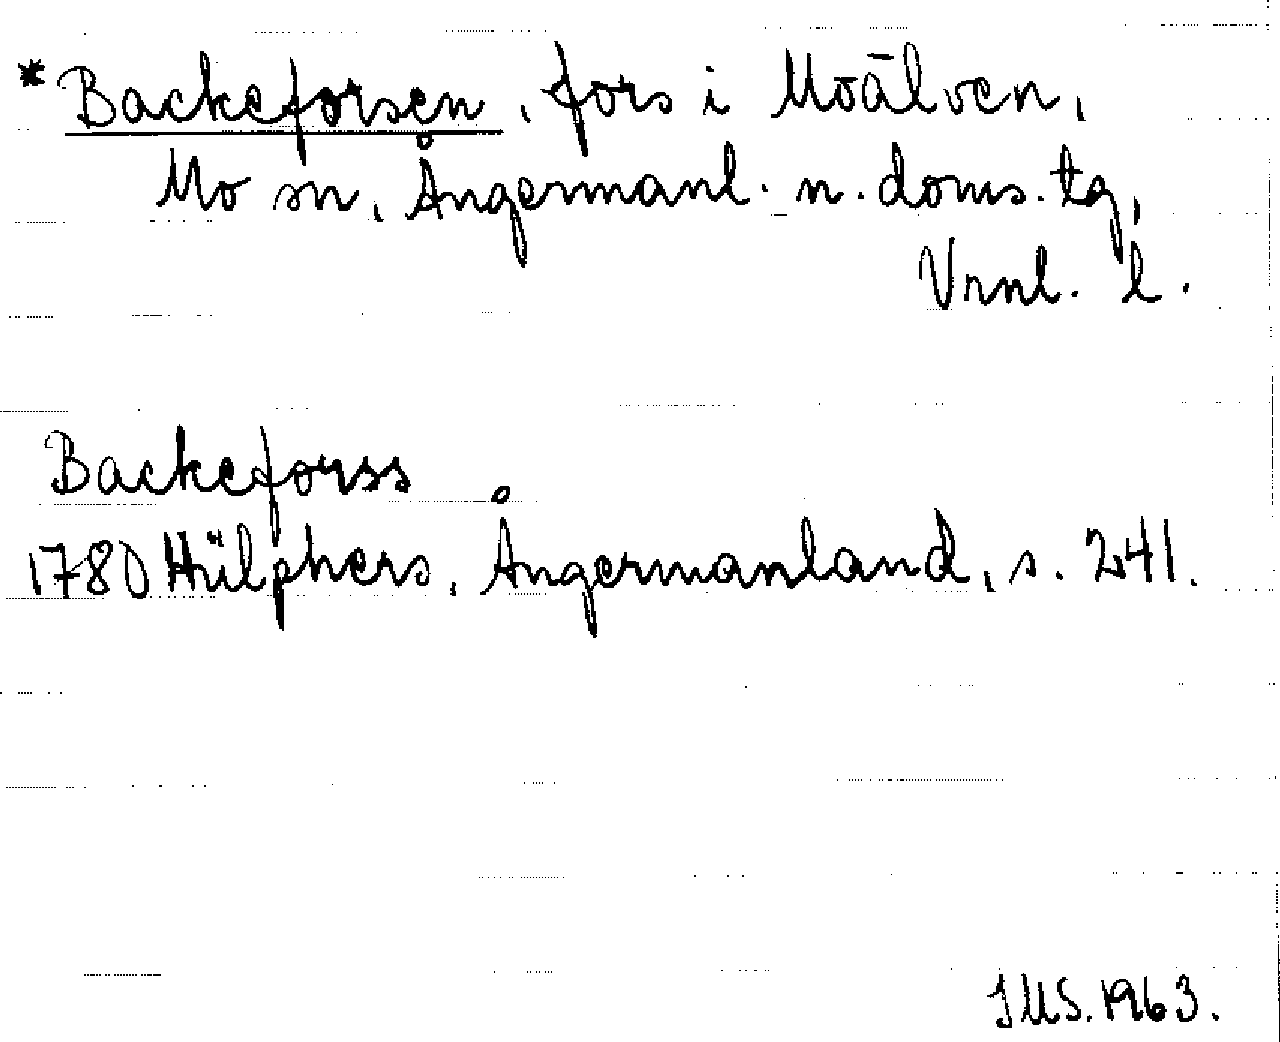 *Backeforsen, fors i Moälven,
Mo sn, Ångermanl. n. doms. tg,
Vrnl. l.
Backeforss
1780 Hülphers, Ångermanland, s. 241.
JMS. 1963.